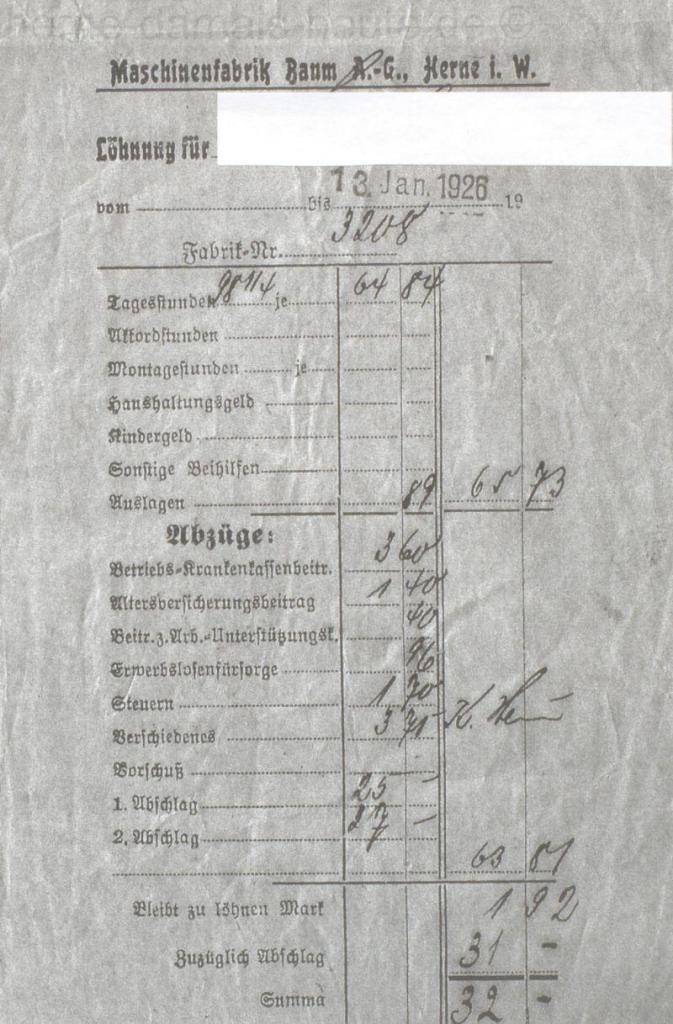 herne-damals-heute.de ©
Maschinenfabrik Baum A.-G., Herne i. W.
Löhnung für
vom bis 13. Jan. 1926 19
Fabrik-Nr. 3208
Tagesstunden 98 1/4 je 64 84
Akkordstunden
Montagestunden je
Haushaltungsgeld
Kindergeld
Sonstige Beihilfen
Auslagen 89 65 73
Abzüge:
Betriebs-Krankenkassenbeitr. 3 60
Altersversicherungsbeitrag 1 40
Beitr. z. Arb.-Unterstützungsk. 40
Erwerbslosenfürsorge 96
Steuern 1 70
Verschiedenes 3 75 K.
Vorschuß
1. Abschlag 25 –
2. Abschlag 27 –
63 81
Bleibt zu löhnen Mark 1 92
Zuzüglich Abschlag 31 –
Summa 32 –